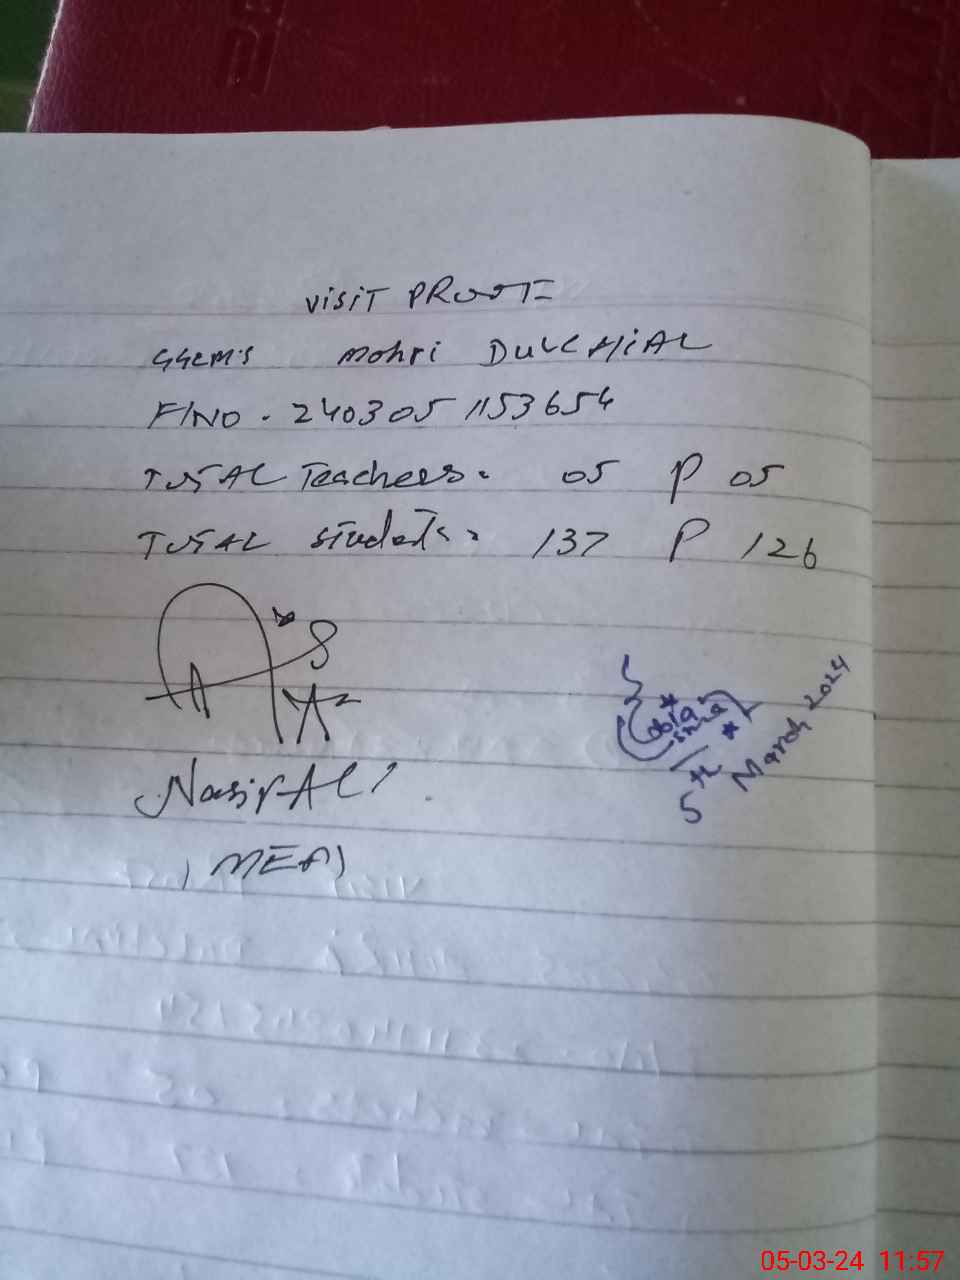 VISIT PROOF
GGCMS Mohri DULCHIAL
F/NO. 240305 1153654
TOTAL Teachers = 05 P 05
TOTAL Students = 137 P 126
Nasir ALI
(MEA)
5th March 2024
05-03-24 11:57